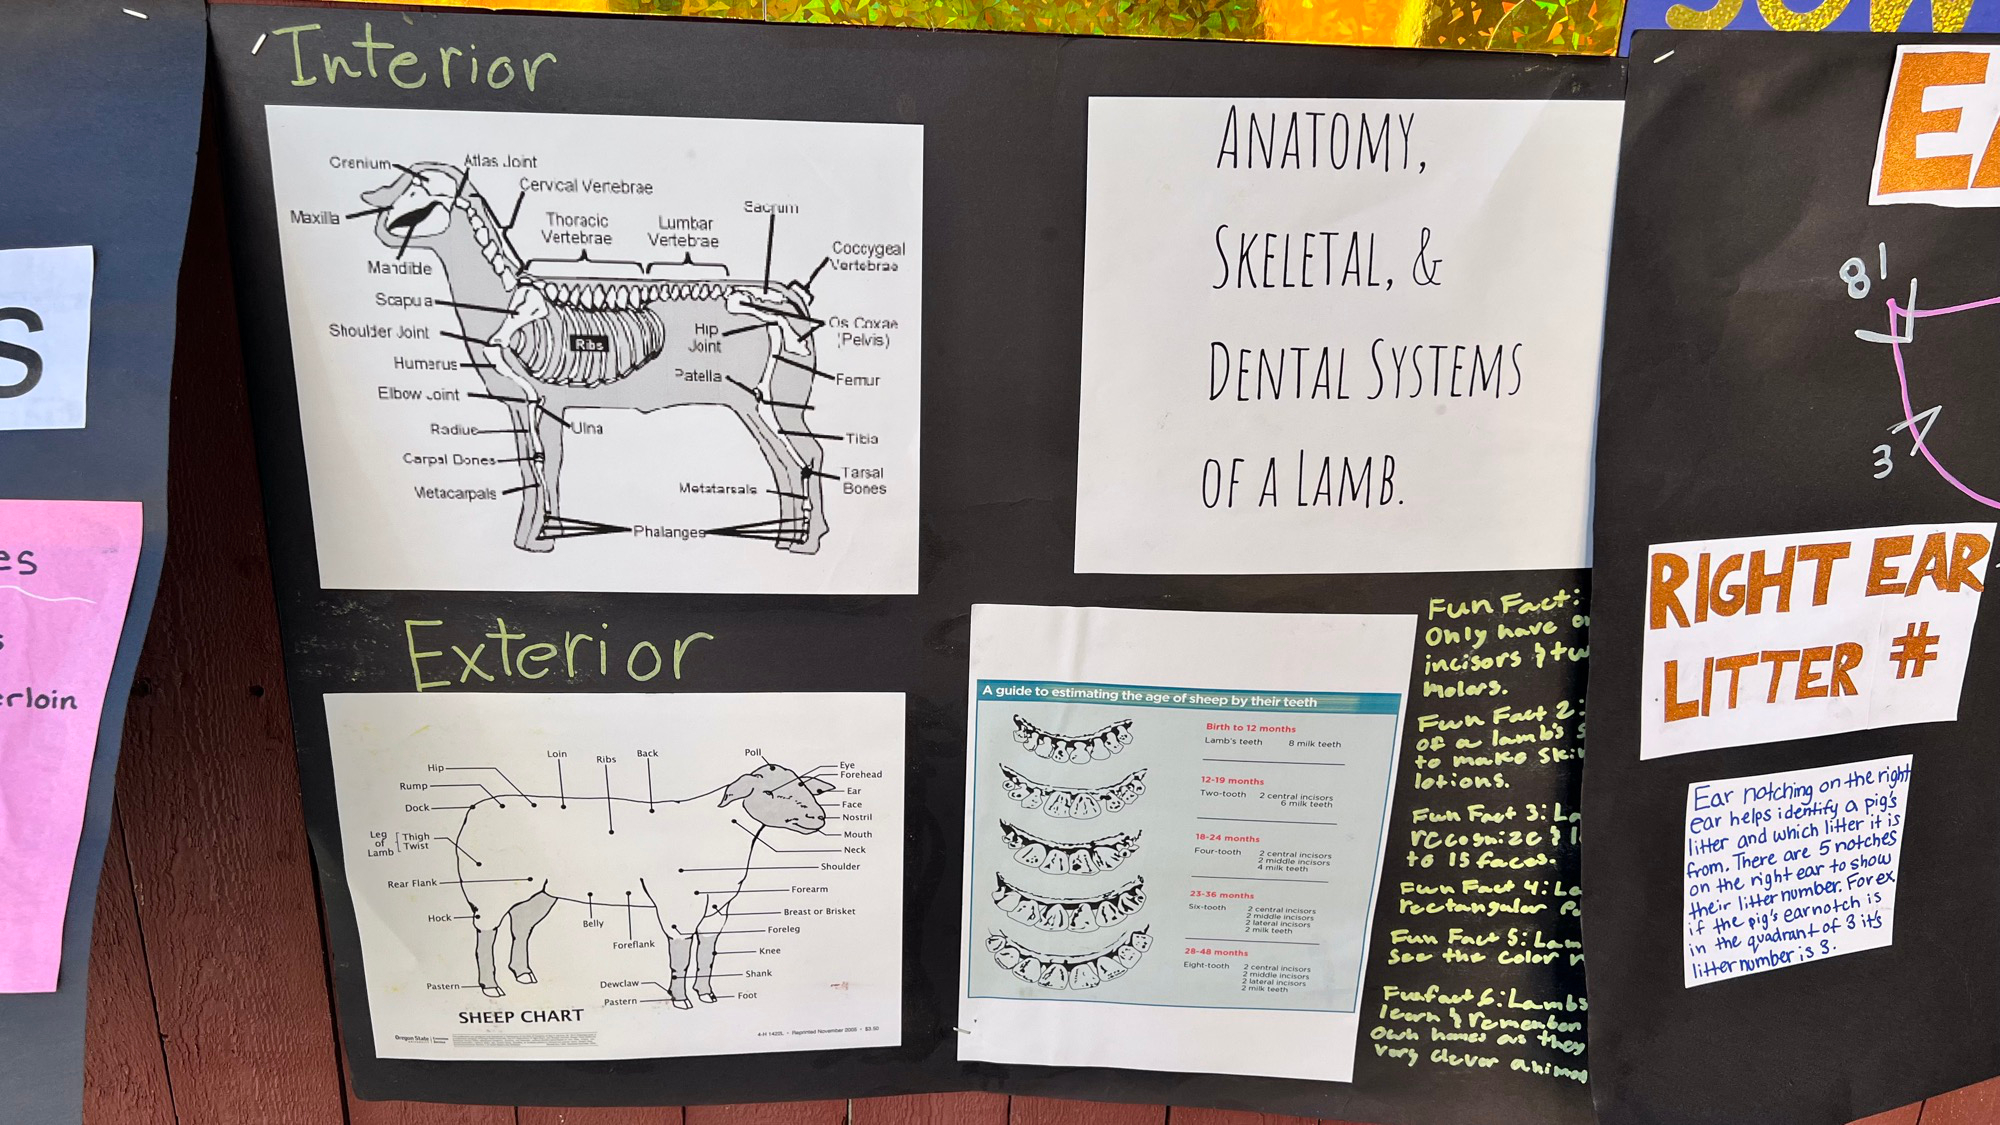 S
es
s
erloin
Interior
Crenium
Atlas Joint
Cervical Vertebrae
Maxilla
Thoracic
Vertebrae
Lumbar
Vertebrae
Sacrum
Coccygeal
Vertebrae
Mandible
Scapu a
Shoulder Joint
Ribs
Hip
Joint
Os Coxae
(Pelvis)
Humerus
Patella
Femur
Elbow Joint
Radius
Ulna
Tibia
Carpal Bones
Metacarpals
Metatarsals
Tarsal
Bones
Phalanges
Exterior
Loin
Ribs
Back
Poll
Hip
Eye
Forehead
Rump
Ear
Dock
Face
Nostril
Leg
of
Lamb
Thigh
Twist
Mouth
Neck
Shoulder
Rear Flank
Forearm
Hock
Belly
Breast or Brisket
Foreflank
Foreleg
Knee
Shank
Pastern
Dewclaw
Pastern
Foot
SHEEP CHART
Oregon State
4-H 1422L • Reprinted November 2005 • $3.50
ANATOMY,
SKELETAL, &
DENTAL SYSTEMS
OF A LAMB.
A guide to estimating the age of sheep by their teeth
Birth to 12 months
Lamb's teeth 8 milk teeth
12-19 months
Two-tooth 2 central incisors
6 milk teeth
18-24 months
Four-tooth 2 central incisors
2 middle incisors
4 milk teeth
23-36 months
Six-tooth 2 central incisors
2 middle incisors
2 lateral incisors
2 milk teeth
28-48 months
Eight-tooth 2 central incisors
2 middle incisors
2 lateral incisors
2 milk teeth
Fun Fact:
Only have
incisors & tw
Molars.
Fun Fact 2:
of a lamb's s
to make ski
lotions.
Fun Fact 3: La
recognize & l
to 15 faces.
Fun Fact 4: La
rectangular P
Fun Fact 5: Lam
see the color r
Funfact 6: Lambs
learn & remember
own names as they
very clever anima
SOW
EA
81
3
RIGHT EAR
LITTER #
Ear notching on the right
ear helps identify a pig's
litter and which litter it is
from. There are 5 notches
on the right ear to show
their litter number. For ex,
if the pig's ear notch is
in the quadrant of 3 it's
litter number is 3.